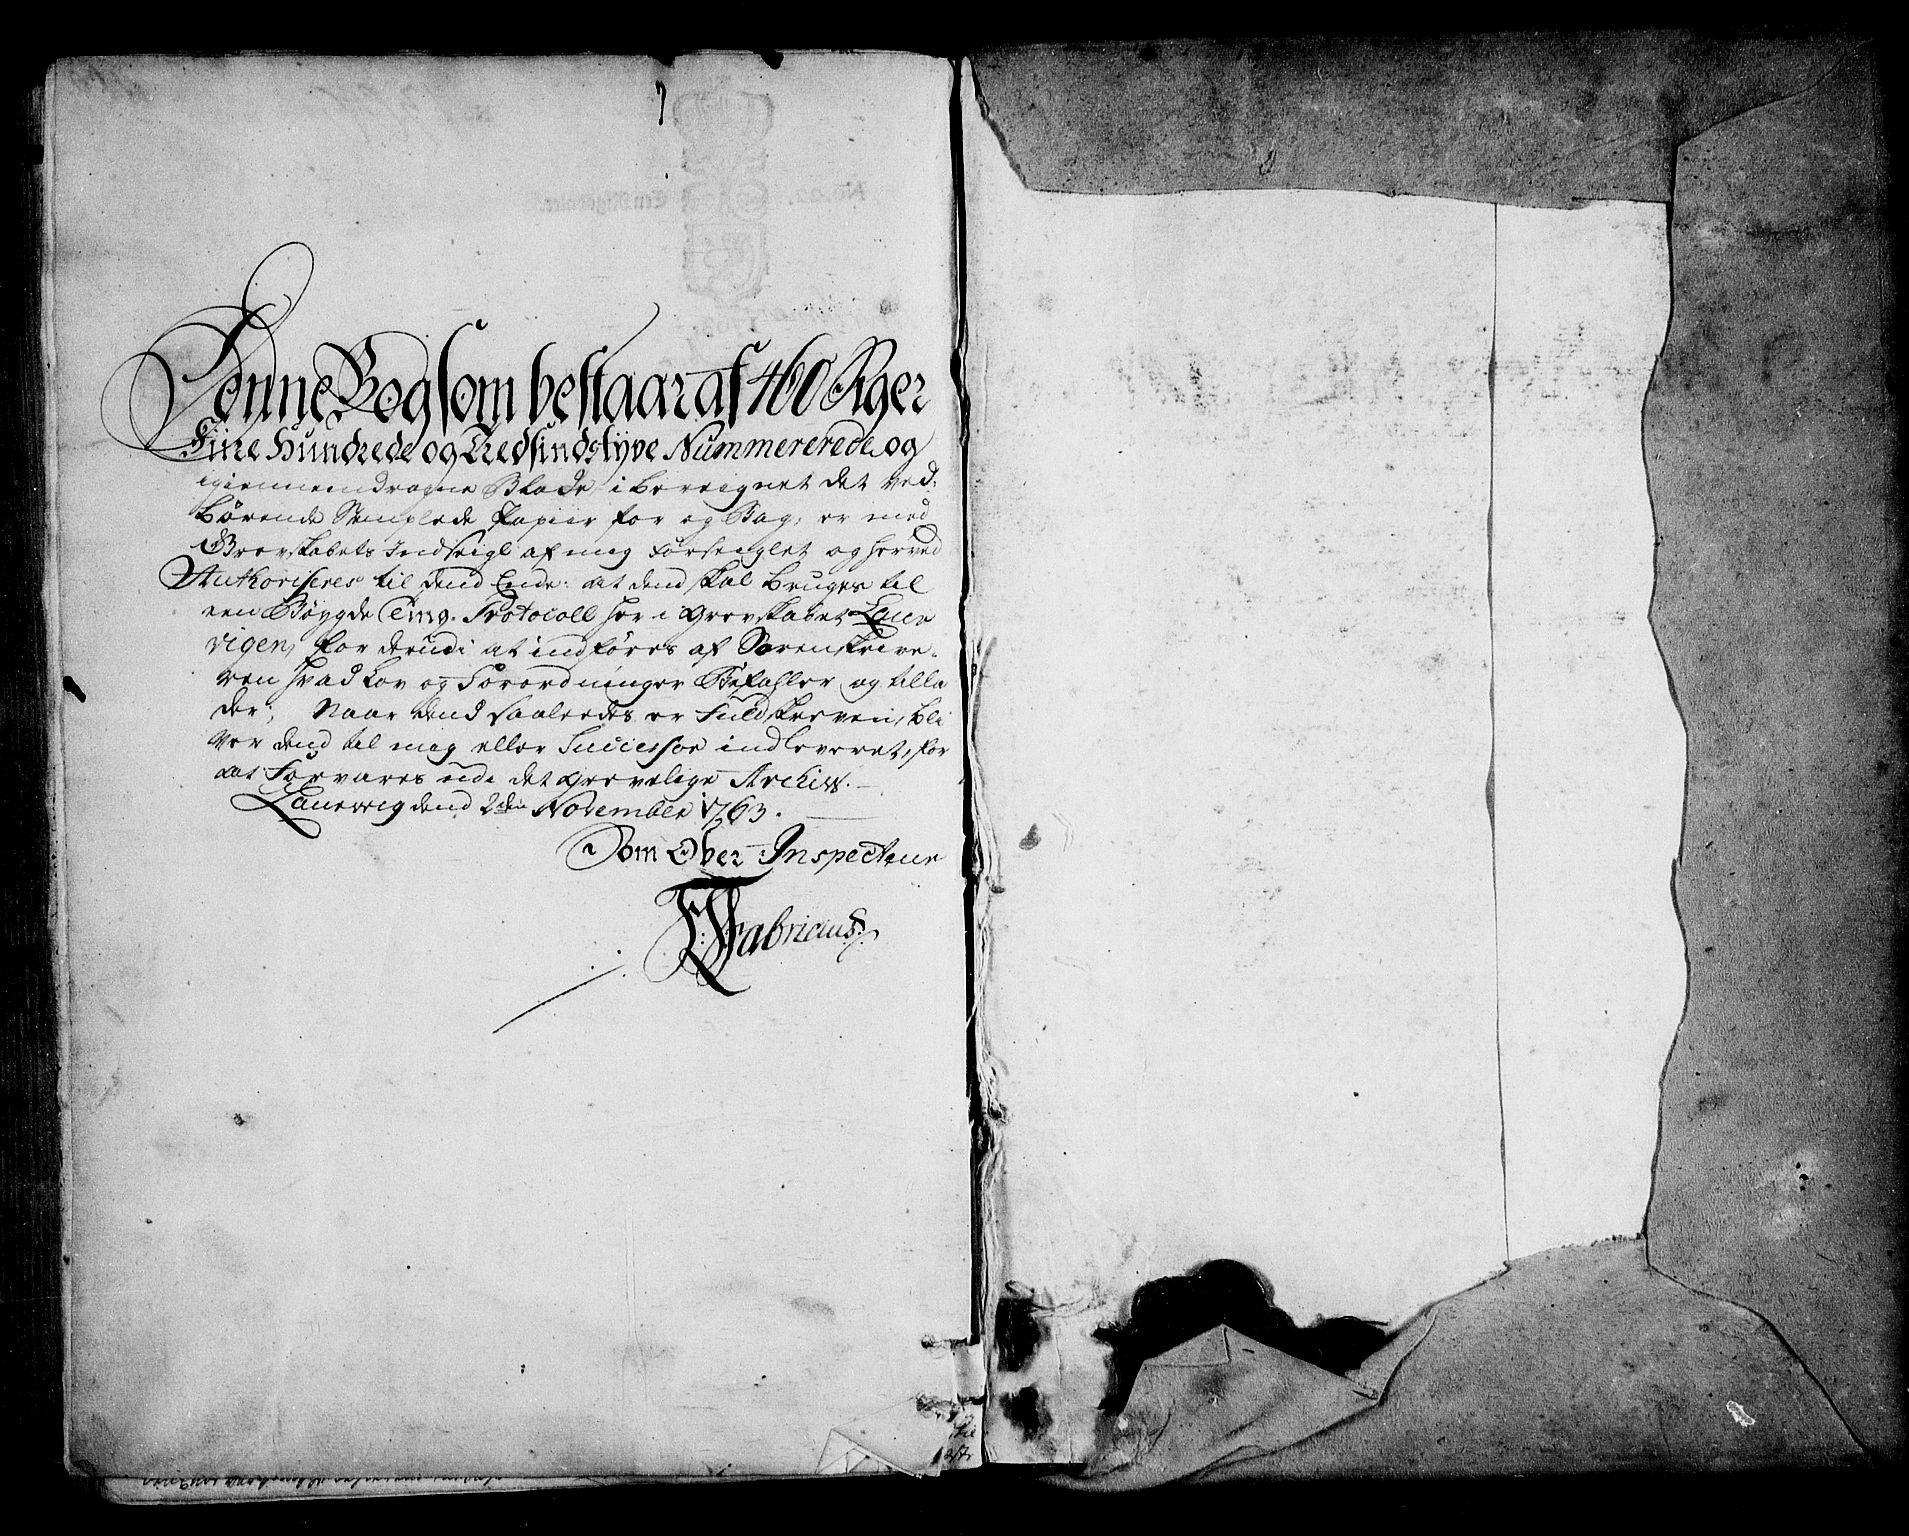 Denne Bog som bestaar af 460 Siger
Fiire Hundrede og Tredsindstyve Nummererede og
igiennemdragne Blade, i bereignet det ved-
børende Stemplede Papiir for og Bag, er med
Grevskabets Indseigl af mig forseiglet og herved
Authoriseres til dend Ende: at dend skal bruges til
een Bøygde Ting-Protocoll her i Grevskabet Laur
vigen, for derudi at indføres af Sorenskrive-
ren hvad Lov og Forordninger Befahler og tilla
der; Naar dend saaledes er Fuldskreven, bli
ver dend til mig eller Successor indleveret, for
at Forvares udi det grevelige Archiv.
Laurvig dend 2den November 1763.
Som Ober-Inspecteur
Fabricius